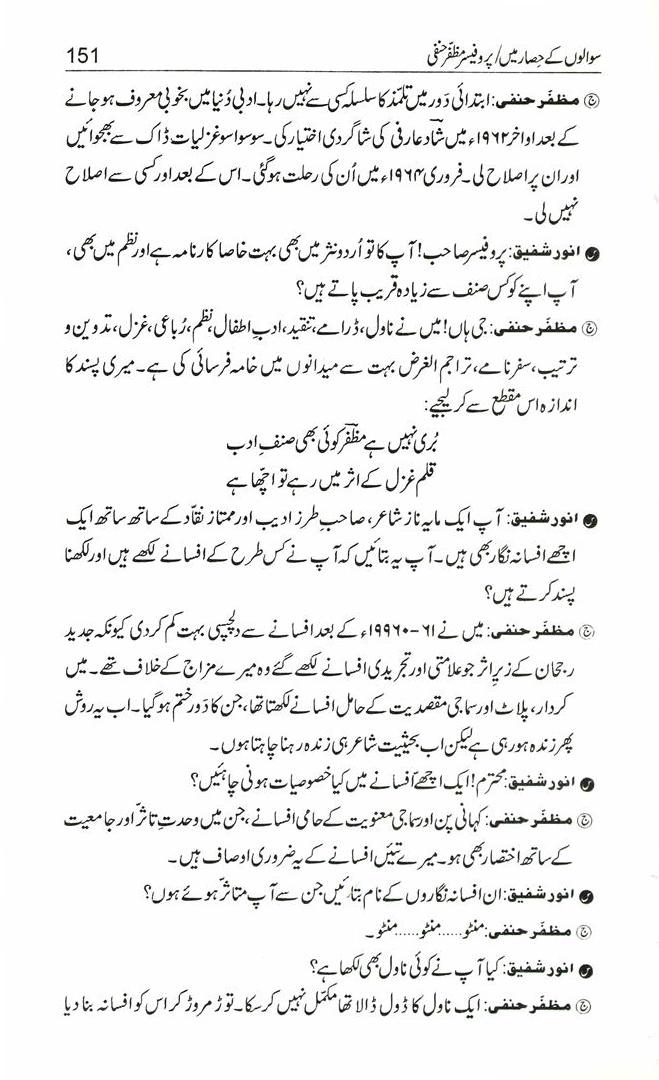 سوالوں کے حصار میں/پروفیسر مظفّر حنفی 151
ج مظفّر حنفی: ابتدائی دَور میں تلمّذ کا سلسلہ کسی سے نہیں رہا۔ ادبی دُنیا میں بخوبی معروف ہو جانے
کے بعد اواخر ۱۹۶۲ء میں شادؔ عارفی کی شاگردی اختیار کی۔ سو سوا سو غزلیات ڈاک سے بھجوائیں
اور ان پر اصلاح لی۔ فروری ۱۹۶۴ء میں اُن کی رحلت ہو گئی۔ اس کے بعد اور کسی سے اصلاح
نہیں لی۔
س انور شفیق: پروفیسر صاحب! آپ کا تو اُردو نثر میں بھی بہت خاصا کارنامہ ہے اور نظم میں بھی،
آپ اپنے کو کس صنف سے زیادہ قریب پاتے ہیں؟
ج مظفّر حنفی: جی ہاں! میں نے ناول، ڈرامے، تنقید، ادبِ اطفال، نظم، رُباعی، غزل، تدوین و
ترتیب، سفرنامے، تراجم الغرض بہت سے میدانوں میں خامہ فرسائی کی ہے۔ میری پسند کا
اندازہ اس مقطع سے کر لیجیے:
بُری نہیں ہے مظفّرؔ کوئی بھی صنفِ ادب
قلم غزل کے اثر میں رہے تو اچھّا ہے
س انور شفیق: آپ ایک مایہ ناز شاعر، صاحبِ طرز ادیب اور ممتاز نقّاد کے ساتھ ساتھ ایک
اچھے افسانہ نگار بھی ہیں۔ آپ یہ بتائیں کہ آپ نے کس طرح کے افسانے لکھے ہیں اور لکھنا
پسند کرتے ہیں؟
ج مظفّر حنفی: میں نے ۶۱-۱۹۹۶۰ء کے بعد افسانے سے دلچسپی بہت کم کر دی کیونکہ جدید
رجحان کے زیرِ اثر جو علامتی اور تجریدی افسانے لکھے گئے وہ میرے مزاج کے خلاف تھے۔ میں
کردار، پلاٹ اور سماجی مقصدیت کے حامل افسانے لکھتا تھا، جن کا دَور ختم ہو گیا۔ اب یہ روش
پھر زندہ ہو رہی ہے لیکن اب بحیثیت شاعر ہی زندہ رہنا چاہتا ہوں۔
س انور شفیق: محترم! ایک اچھے افسانے میں کیا خصوصیات ہونی چاہئیں؟
ج مظفّر حنفی: کہانی پن اور سماجی معنویت کے حامی افسانے، جن میں وحدتِ تاثّر اور جامعیت
کے ساتھ اختصار بھی ہو۔ میرے تئیں افسانے کے یہ ضروری اوصاف ہیں۔
س انور شفیق: ان افسانہ نگاروں کے نام بتائیں جن سے آپ متاثّر ہوئے ہوں؟
ج مظفّر حنفی: منٹو......منٹو......منٹو۔
س انور شفیق: کیا آپ نے کوئی ناول بھی لکھا ہے؟
ج مظفّر حنفی: ایک ناول کا ڈول ڈالا تھا مکمّل نہیں کر سکا۔ توڑ مروڑ کر اس کو افسانہ بنا دیا